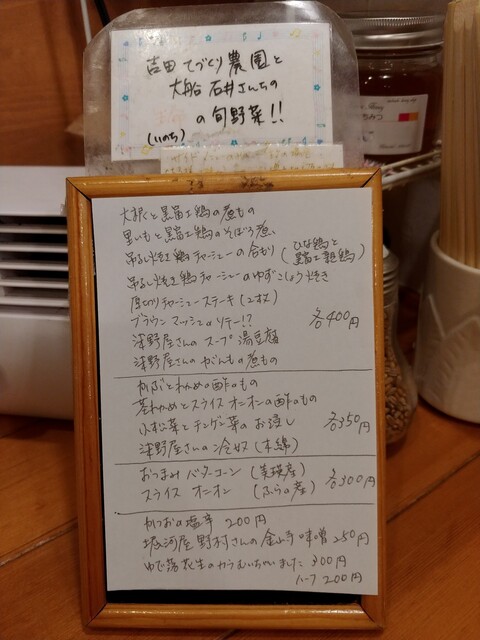 吉田 てづくり農園と
大船 石井さんちの
の旬野菜!!
(いのち)
大根と黒富士鶏の煮もの
里いもと黒富士鶏のそぼろ煮
吊るし焼き鶏チャーシューの合もり (ひな鶏と黒富士親鶏)
吊るし焼き鶏チャーシューのゆずこしょう焼き
厚切りチャーシューステーキ (2枚)
ブラウンマッシュのソテー!?
各400円
深野屋さんのスープ湯豆腐
深野屋さんのがんもの煮もの
かぶとわかめの酢のもの
茎わかめとスライスオニオンの酢のもの
小松菜とチンゲン菜のお浸し
各350円
深野屋さんの冷奴 (木綿)
おつまみバターコーン (美瑛産)
スライスオニオン (ふらの産)
各300円
かつおの塩辛 200円
堀河屋野村さんの金山寺味噌 250円
ゆで落花生のからむいちゃいました 300円
ハーフ 200円